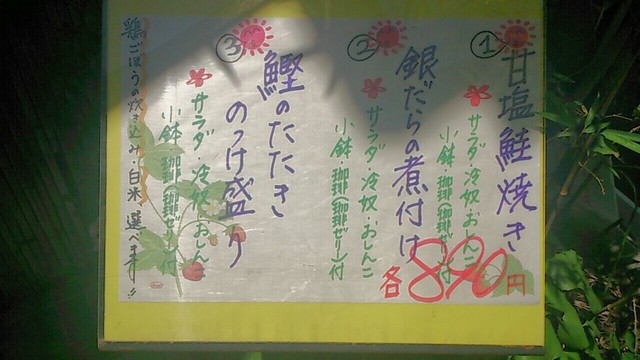 ①甘塩鮭焼き
サラダ・冷奴・おしんこ
小鉢・珈琲(珈琲ゼリー)付
②銀だらの煮付け
サラダ・冷奴・おしんこ
小鉢・珈琲(珈琲ゼリー)付
③鰹のたたき
のっけ盛り
サラダ・冷奴・おしんこ
小鉢・珈琲(珈琲ゼリー)付
各890円
鶏ごぼうの炊き込み・白米 選べます!!